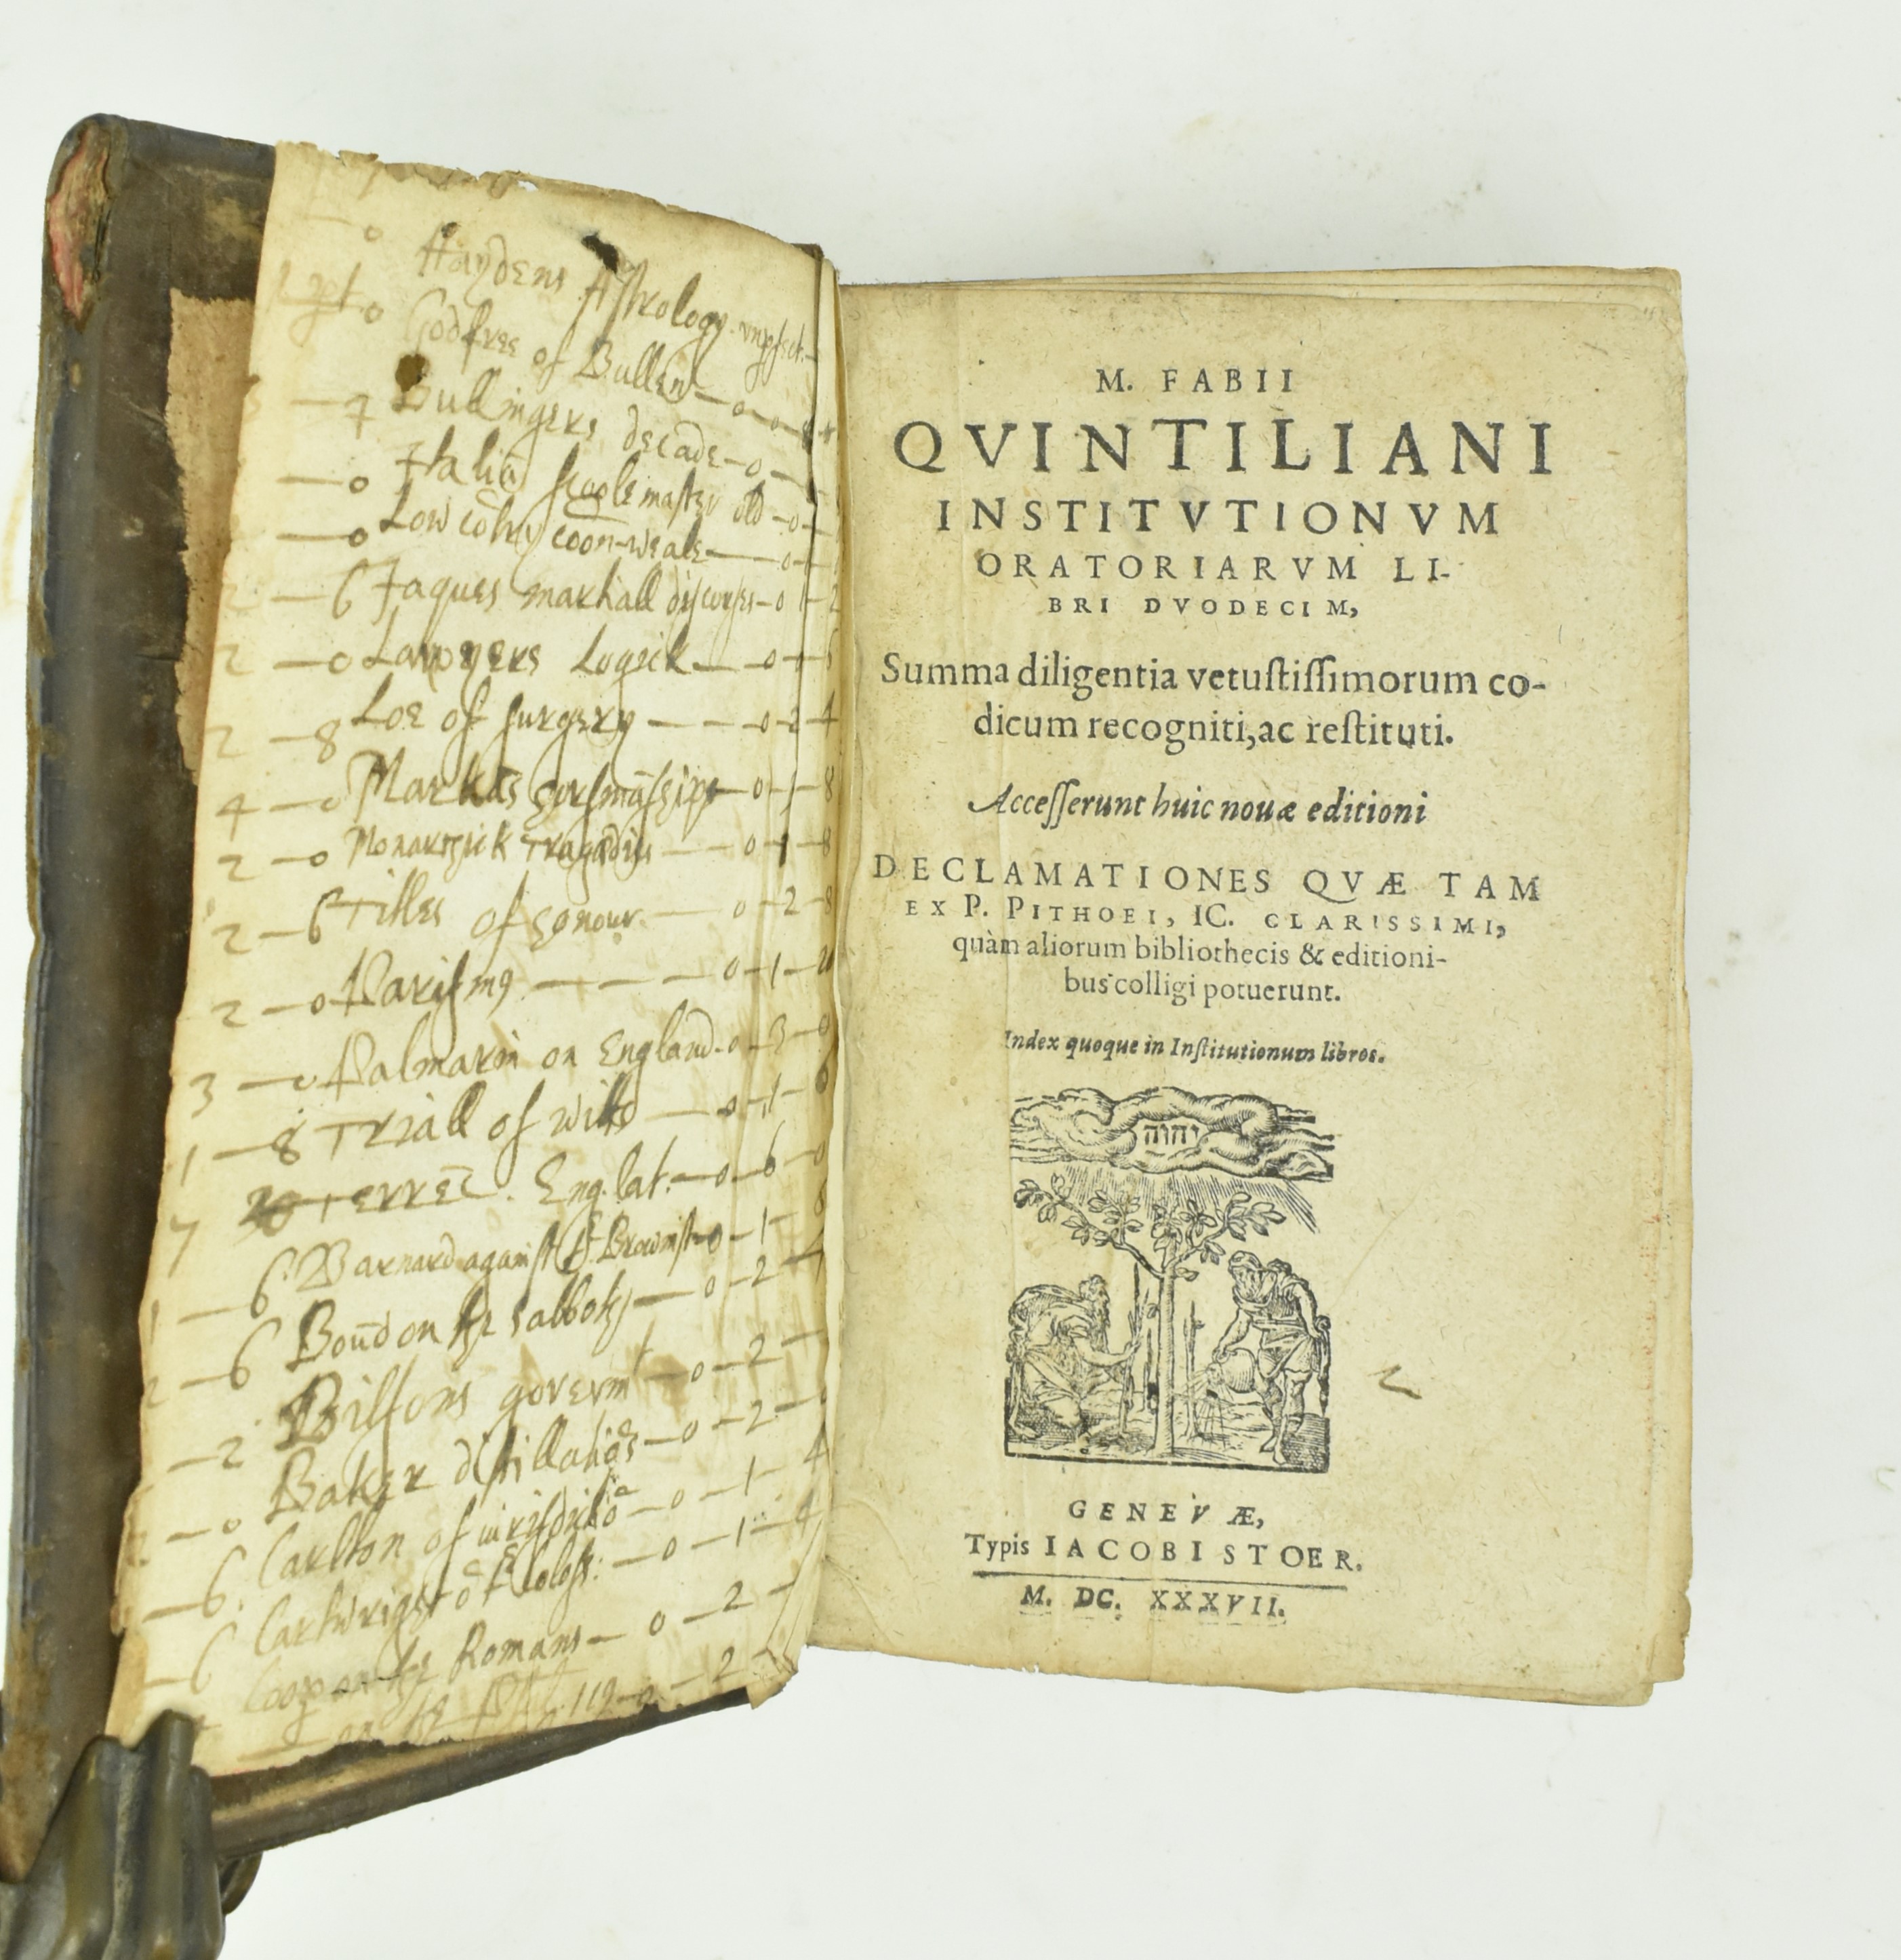 Haydens Astrology
Godfree of Bullen — 0
Bullingers decade — 0 —
— 0 Italiā scoolemaster old — 0 —
— 0 Low cōtry cōon-weale — 0 —
2 — 6 Jaques marhall discourses — 0 1 — 2
2 — 0 Lawyers Logick — 0 —
2 — 8 Loe of surgery — — 0 2 — 4
4 — 0 Markās horsmāshipe — 0 — 1 — 8
2 — 0 Monarchick Tragedies — — 0 — 1 — 8
2 — 6 Titles of honour — 0 — 2 — 8
2 — 0 Parismg — — — 0 — 1 —
3 — 0 Palmarin on England — 0 — 3 — 0
1 — 8 Triall of witts — 0 — 1 — 6
7 Terrec. Eng. lat. — 0 — 6 — 0
6 Barnard against Brownist — 0 — 1 — 8
— 6 Boūd on the sabboth — 0 — 2 —
— 6 Bilsons govermt — 0 — 2 —
— 2 Baker distillatiōs — 0 — 2 —
— 0 Carlton of iurisdictiō — 0 — 1 — 4
— 6 Cartwright ō Coloss: — 0 — 1 — 4
— 6 Coop on the Romans — 0 — 2 —
on the 119 — 0 — 2
M. FABII
QVINTILIANI
INSTITVTIONVM
ORATORIARVM LI-
BRI DVODECIM,
Summa diligentia vetustissimorum co-
dicum recogniti, ac restituti.
Accesserunt huic nouæ editioni
DECLAMATIONES QVÆ TAM
EX P. PITHOEI, IC. CLARISSIMI,
quàm aliorum bibliothecis & editioni-
bus colligi potuerunt.
Index quoque in Institutionum libros.
יהוה
GENEVÆ,
Typis IACOBI STOER.
M. DC. XXXVII.